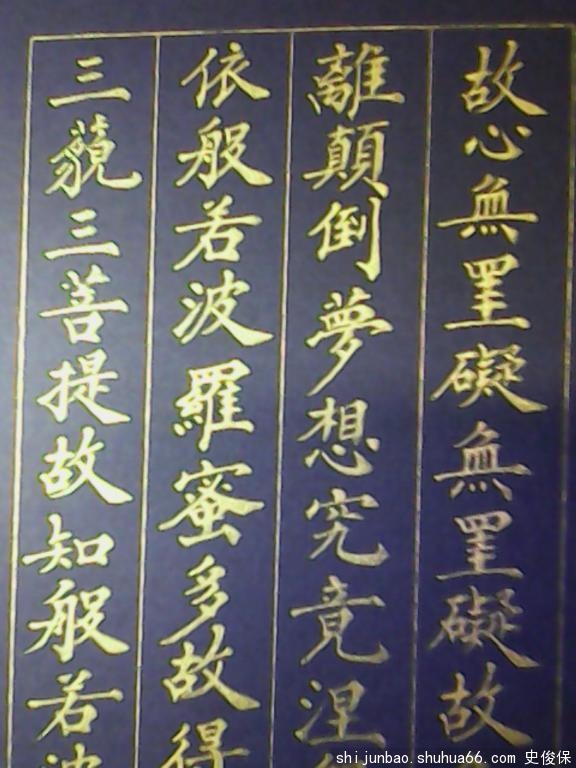 故心無罣礙無罣礙故
離顛倒夢想究竟涅
依般若波羅蜜多故得
三藐三菩提故知般若波
shijunbao.shuhua66.com 史俊保